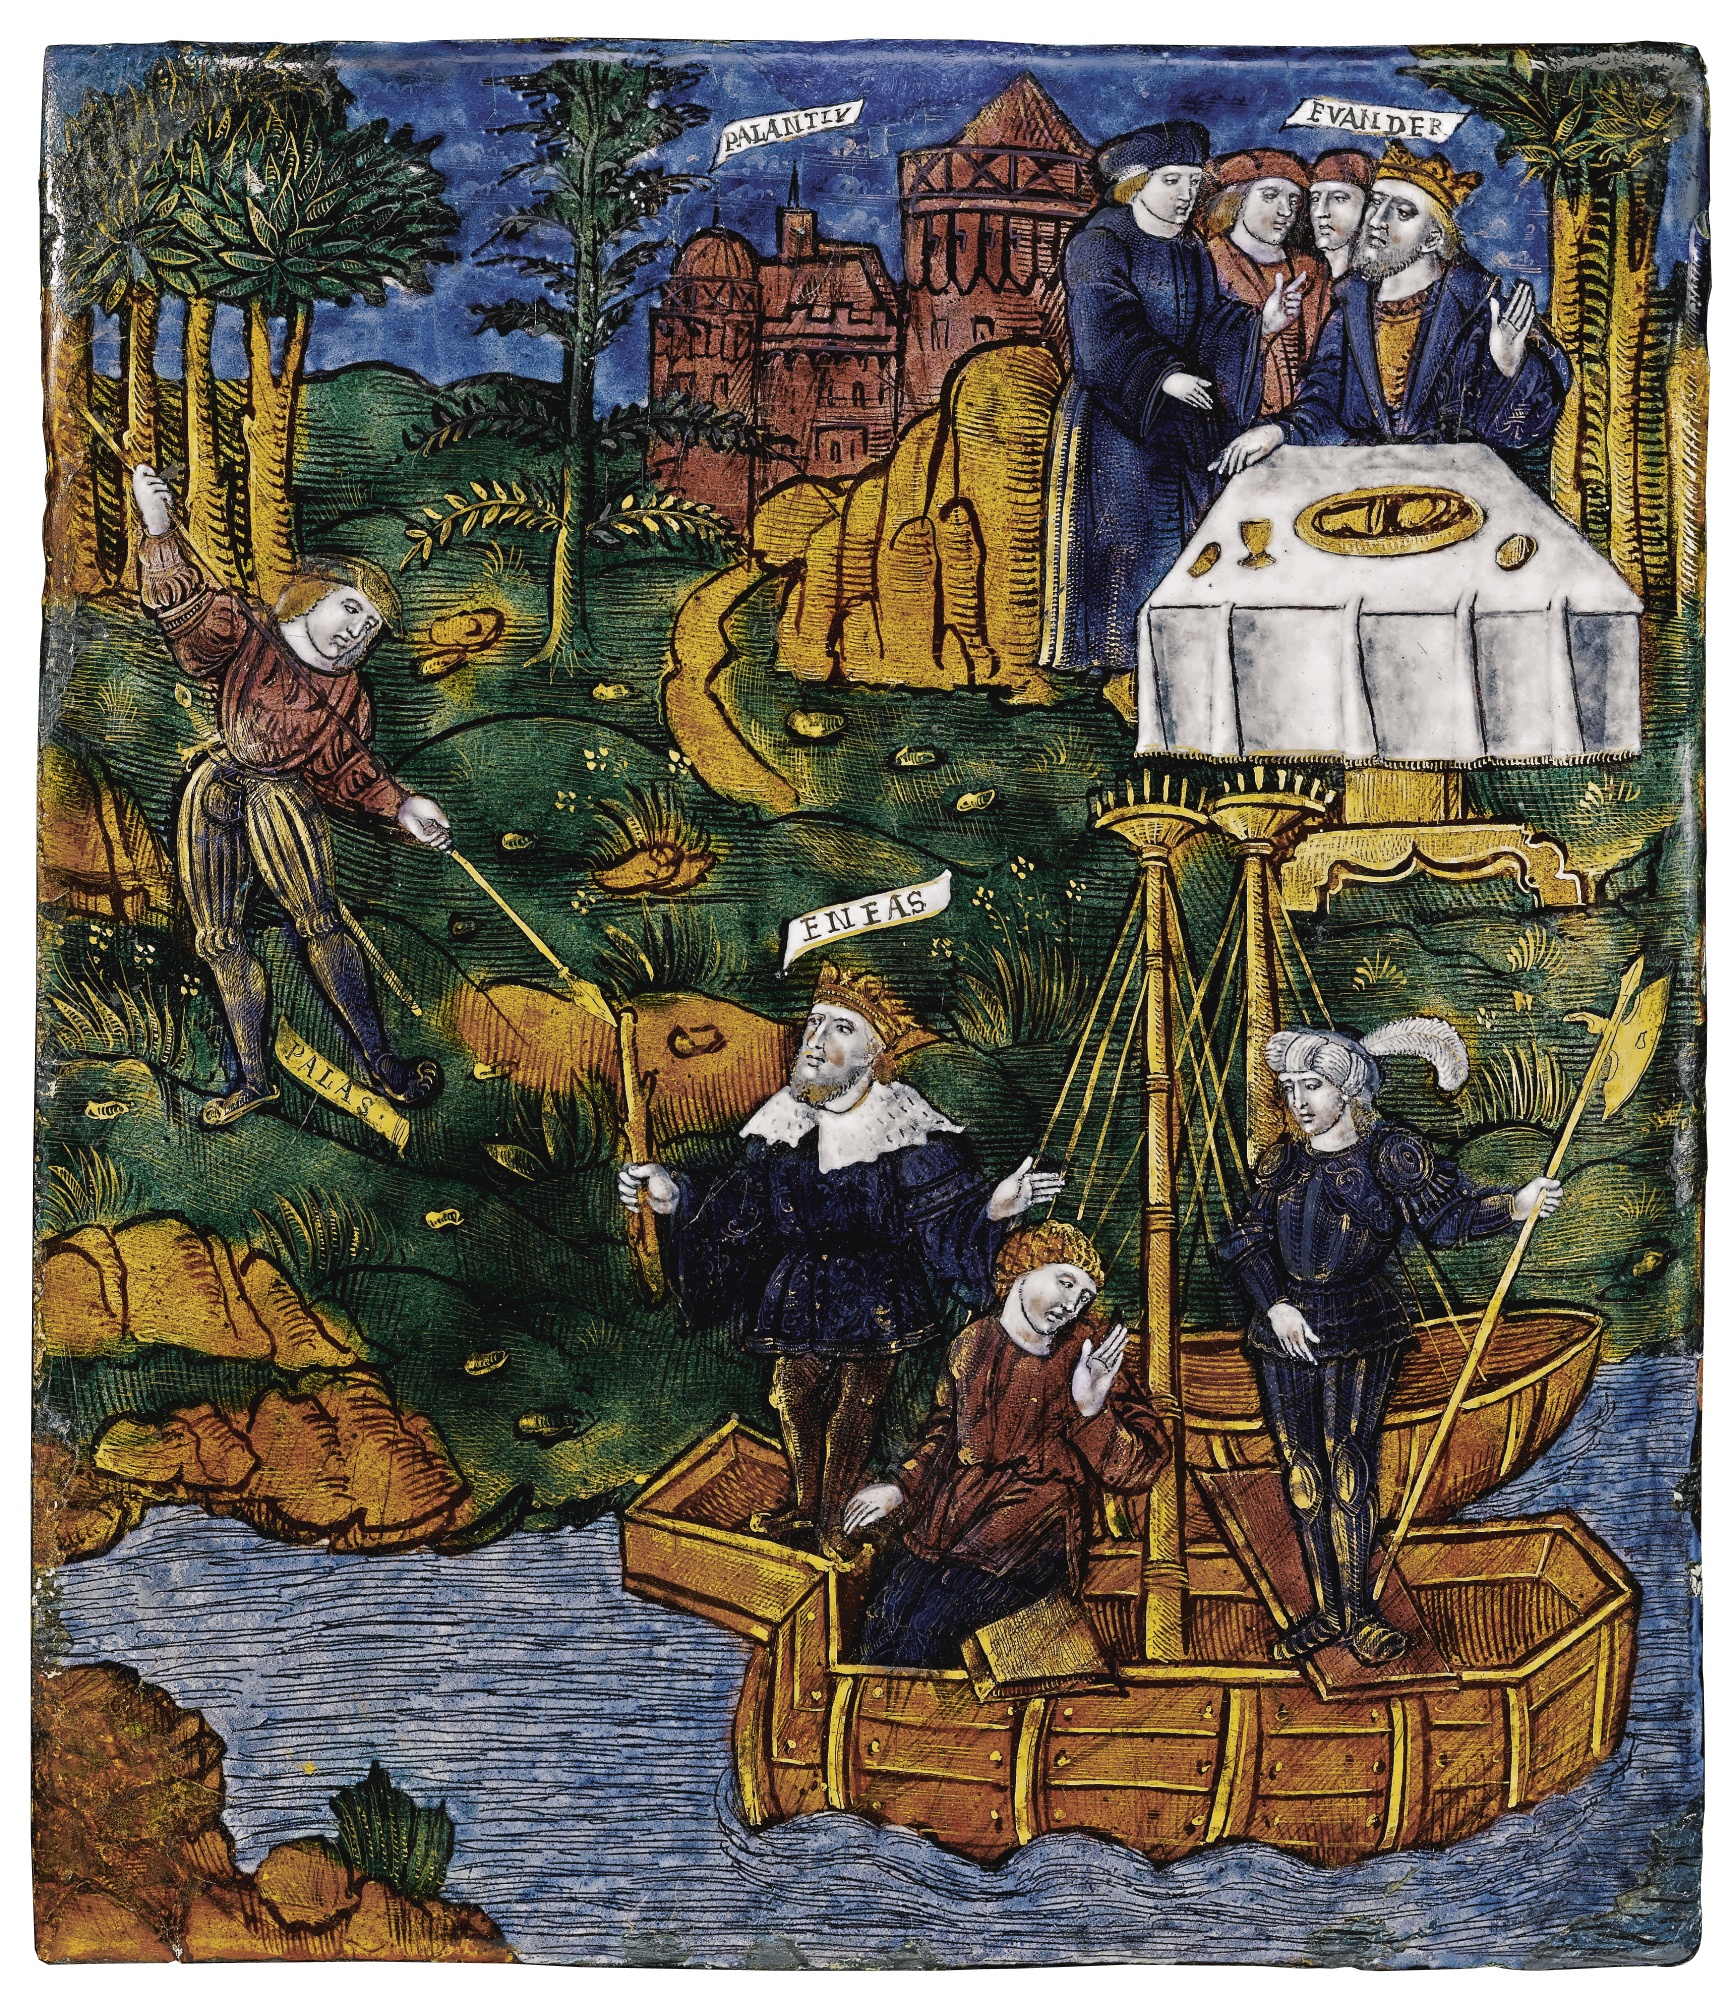 PALANTIV
EVANDER
ENEAS
PALAS